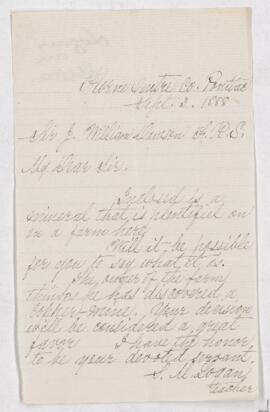 Centre Co. Pontiac
Sept. 3. 1888
Sir J. William Dawson F.R.S.
My Dear Sir.
Enclosed is a
mineral that is identified on
on a farm here
Will it be possible
for you to say what it is
The owner of the farm
thinks he has discovered a
copper mine. Your decision
will be considered a great
favor I have the honor
to be your devoted servant
S. M. Logan
Teacher